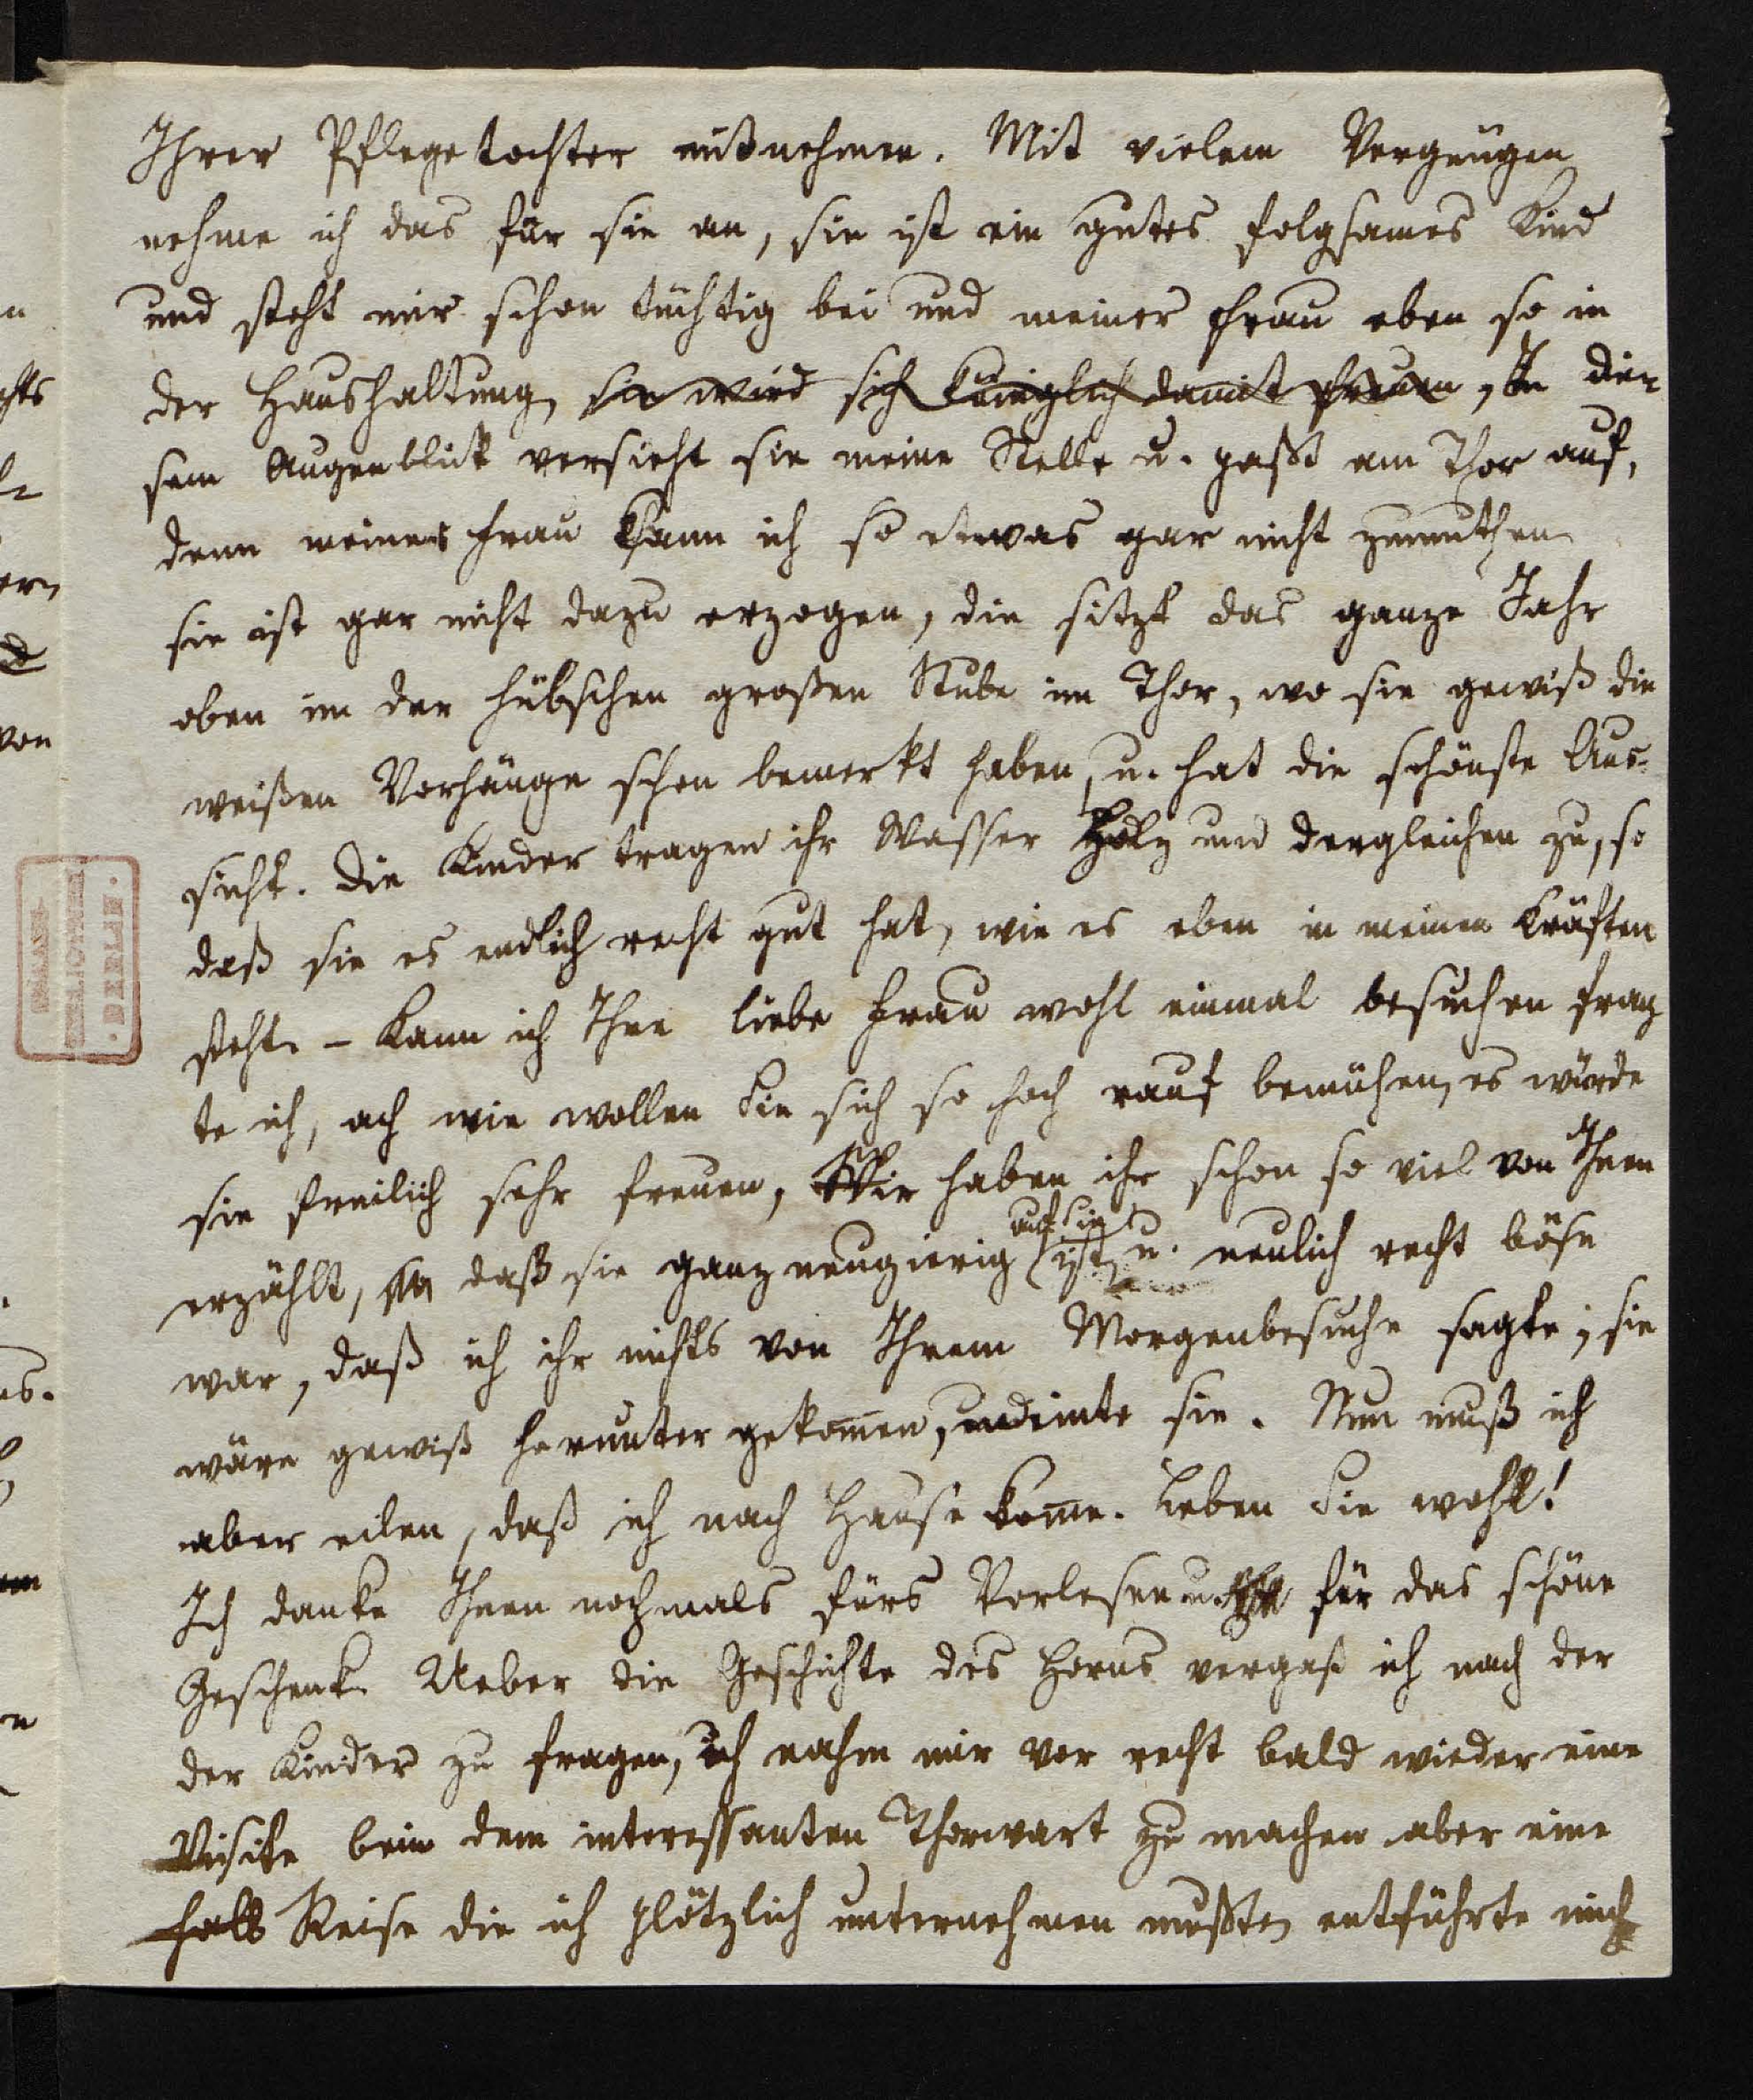 Ihrer Pflegetochter mitnehmen. Mit vielem Vergnügen
nehme ich das für sie an, sie ist ein gutes folgsames Kind
und steht mir schon tüchtig bei und meiner Frau eben so in
der Haushaltung, sie wird sich königlich damit freuen, In die-
sem Augenblick versieht sie meine Stelle u. paßt am Thor auf,
denn meiner Frau kann ich so etwas gar nicht zumuthen
sie ist gar nicht dazu erzogen, die sitzt das ganze Jahr
oben in der hübschen großen Stube im Thor, wo sie gewiß die
weißen Vorhänge schon bemerkt haben, u. hat die schönste Aus-
sicht. Die Kinder tragen ihr Wasser Holz und dergleichen zu, so
daß sie es endlich recht gut hat, wie es eben in meinen Kräften
steht. – Kann ich Ihre liebe Frau wohl einmal besuchen frag
te ich, ach wie wollen Sie sich so hoch rauf bemühen, es würde
sie freilich sehr freuen, Wir haben ihr schon so viel von Ihnen
erzählt, daß sie ganz neugierig auf Sie ist, u. neulich recht böse
war, daß ich ihr nichts von Ihrem Morgenbesuche sagte; sie
wäre gewiß herunter gekom̄en, meinte sie. Nun muß ich
aber eilen, daß ich nach Hause kom̄e. Leben Sie wohl!
Ich danke Ihnen nochmals fürs Vorlesen u. für das schöne
Geschenk. Ueber die Geschichte des Horns vergaß ich nach der
der Kinder zu fragen, ich nahm mir vor recht bald wieder eine
Visite bein dem interessanten Thorwart zu machen aber eine
Reise die ich plötzlich unternehmen mußte, entführte mich
BERLIN.